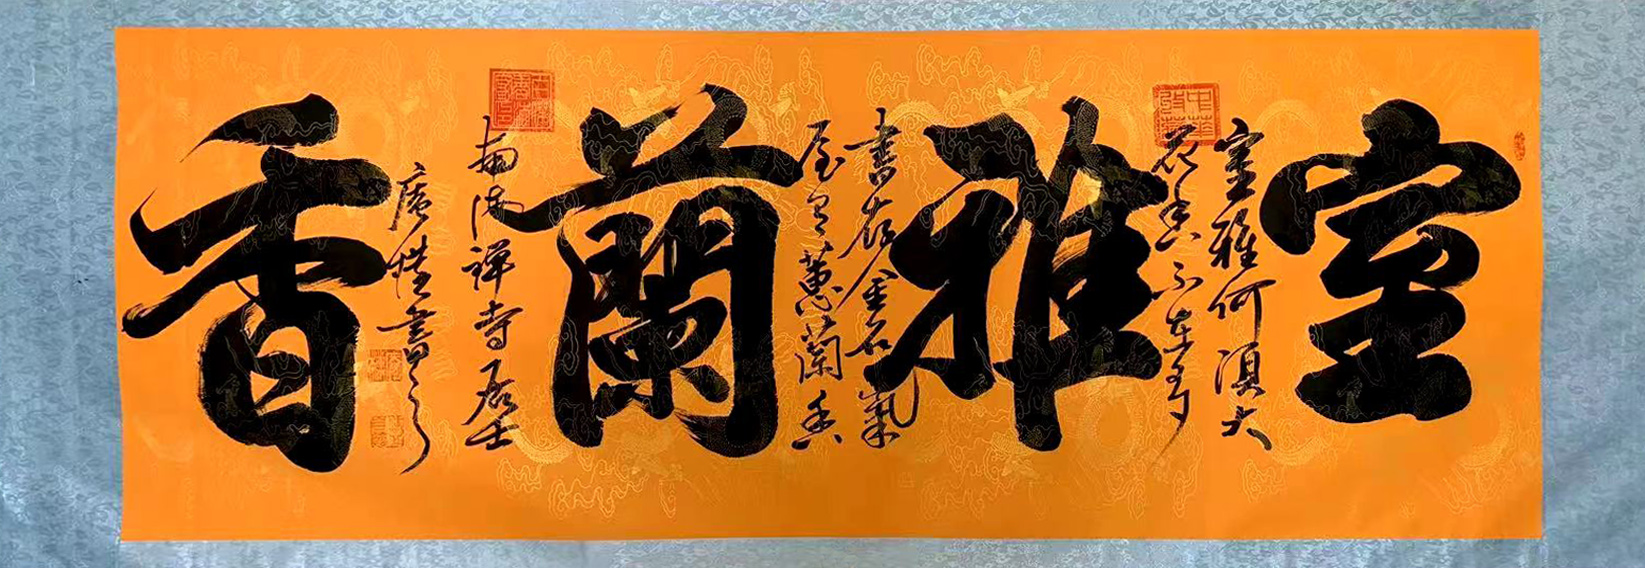 室雅蘭香
室雅何須大
花香不在多
書存金石氣
屋有蕙蘭香
南海禪寺居士
廣
書